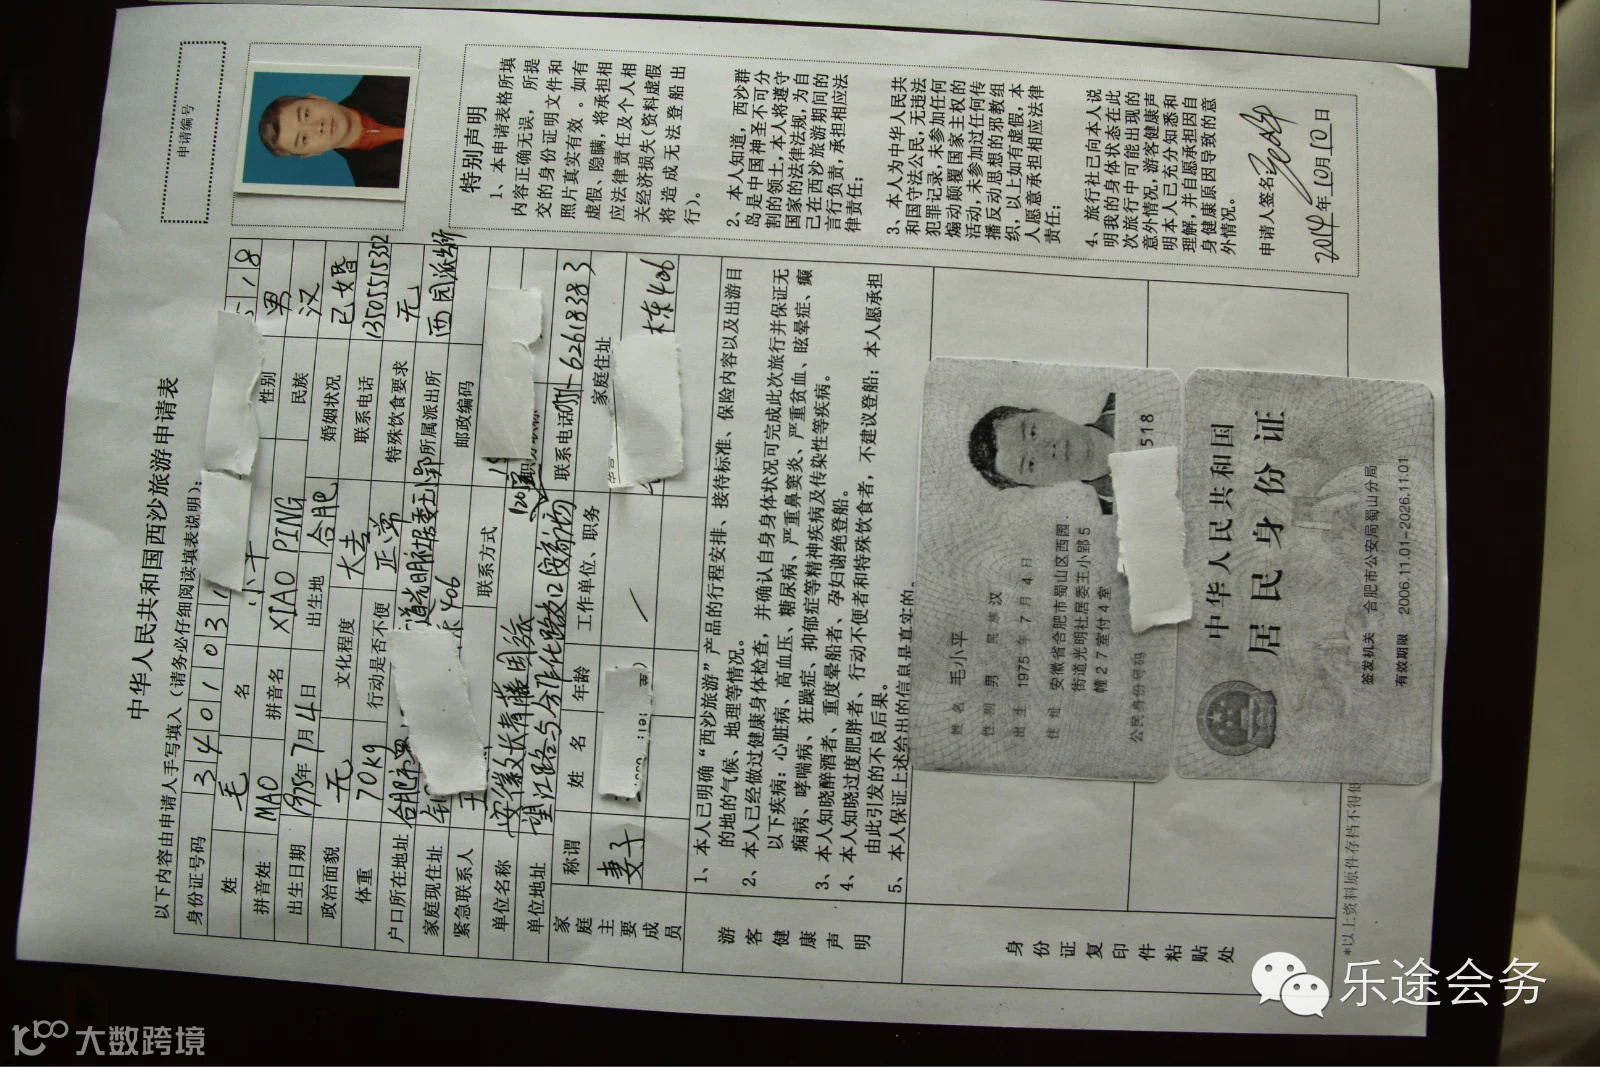 申请编号
中华人民共和国西沙旅游申请表
以下内容由申请人手写填入（请务必仔细阅读填表说明）：
身份证号码 3 4 0 1 0 3 1 5 1 8
姓 毛 名 小平 性别 男
拼音姓 MAO 拼音名 XIAO PING 民族 汉
出生日期 1975年7月4日 出生地 合肥 婚姻状况 已婚
政治面貌 无 文化程度 大专 联系电话 13505515352
体重 70kg 行动是否不便 正常 特殊饮食要求 无
户口所在地址 合肥市 道光明社居委王小郢 所属派出所 西园派出所
家庭现住址 406 邮政编码
紧急联系人 联系方式
单位名称 安徽 国际
单位地址 望江路与合作化路 联系电话 0551-62618383
家庭主要成员
称谓 姓名 年龄 工作单位、职务 家庭住址
妻子 栋406
特别声明
1、本申请表格所填
内容正确无误，所提
交的身份证明文件和
照片真实有效。如有
虚假、隐瞒，将承担相
应法律责任及个人相
关经济损失（资料虚假
将造成无法登船出
行）。
2、本人知道，西沙群
岛是中国神圣不可分
割的领土，本人将遵守
国家的法律法规，为自
己在西沙旅游期间的
言行负责，承担相应法
律责任；
3、本人为中华人民共
和国守法公民，无违法
犯罪记录，未参加任何
煽动颠覆国家主权的
活动，未参加过任何传
播反动思想的邪教组
织，以上如有虚假，本
人愿意承担相应法律
责任；
4、旅行社已向本人说
明我的身体状态在此
次旅行中可能出现的
意外情况，游客健康声
明本人已充分知悉和
理解，并自愿承担因自
身健康原因导致的意
外情况。
申请人签名
2014年10月10日
游客健康声明
1、本人已明确“西沙旅游”产品的行程安排、接待标准、保险内容以及出游目
的地的气候、地理等情况。
2、本人已经做过健康身体检查，并确认自身身体状况可完成此次旅行并保证无
以下疾病：心脏病、高血压、糖尿病、严重鼻窦炎、严重贫血、眩晕症、癫
痫病、哮喘病、狂躁症、抑郁症等精神疾病及传染性等疾病。
3、本人知晓醉酒者、重度晕船者、孕妇谢绝登船。
4、本人知晓过度肥胖者、行动不便者和特殊饮食者，不建议登船；本人愿承担
由此引发的不良后果。
5、本人保证上述给出的信息是真实的。
身份证复印件粘贴处
姓名 毛小平
性别 男 民族 汉
出生 1975年7月4日
住址 安徽省合肥市蜀山区西园
街道光明社居委王小郢5
幢27室付4室
公民身份号码 518
中华人民共和国
居民身份证
签发机关 合肥市公安局蜀山分局
有效期限 2006.11.01-2026.11.01
*以上资料原件存档不得
乐途会务
大数跨境